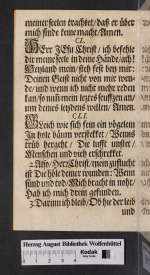 meiner seelen trachtet/ daß er über
mich finde keine macht. Amen.
CL.
HErr JEsu Christ/ ich befehle
dir meine seele in deine Hände/ach!
Heyland mein/ steh fest bey mir:
Deinen Geist nicht von mir wen-
de/ und wenn ich nicht mehr reden
kan/ so nim mein letztes seufftzen an/
um deines leydens willen/ Amen.
CLI.
GLeich wie sich fein ein vögelein
In hole bäum verstecket/ Wenns
trüb hergeht/ Die lufft unstet/
Menschen und vieh erschrecket.
2. Also/ HErr Christ/ mein zuflucht
ist Die höle deiner wunden: Wenn
sünd und tod/ Mich bracht in noht/
Hab ich mich drein gefunden.
3. Darinn ich bleib/ Ob hie der leib
und
Kodak
Herzog August Bibliothek Wolfenbüttel